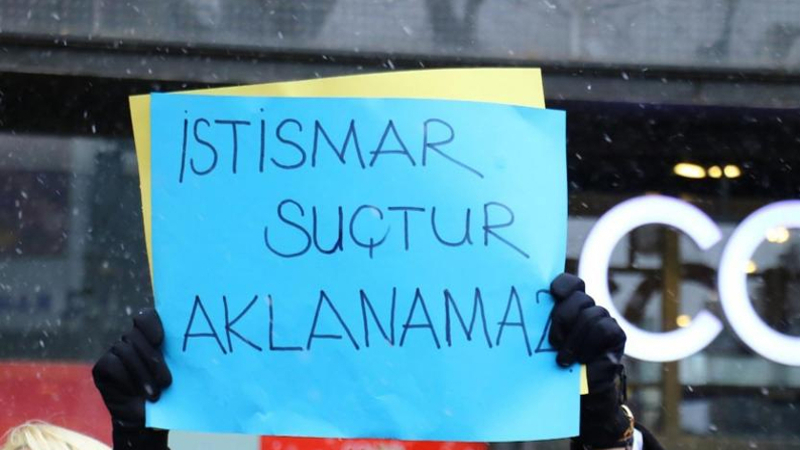 İSTİSMAR
SUÇTUR
AKLANAMAZ
CO